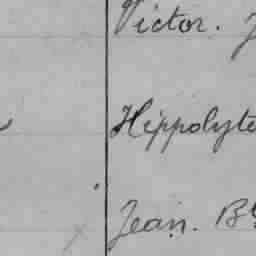 Victor. J
Hippolyte
Jean. Bte